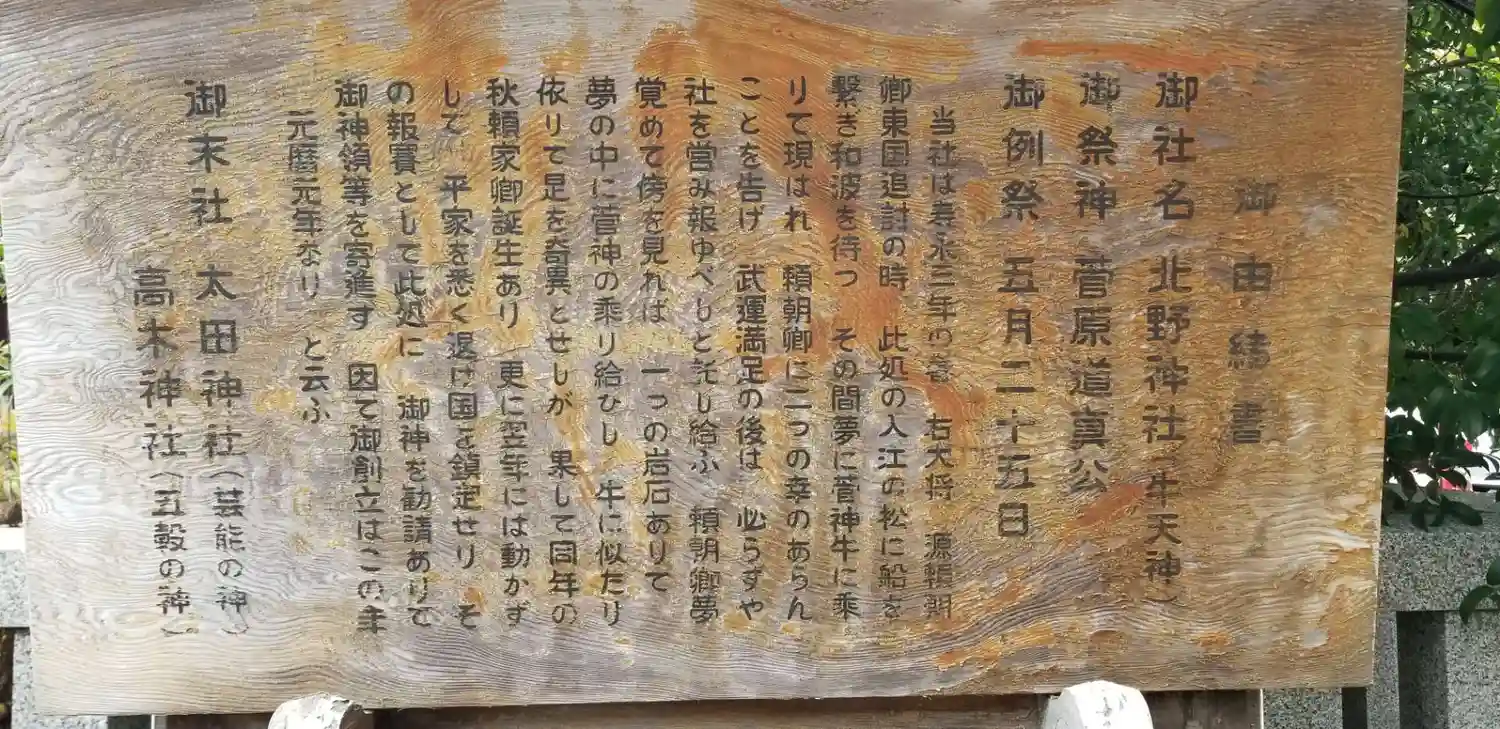 御由緒書
御社名 北野神社（牛天神）
御祭神 菅原道真公
御例祭 五月二十五日
当社は寿永三年の春 右大将 源頼朝
卿東国追討の時 此処の入江の松に船を
繋ぎ和波を待つ その間夢に菅神牛に乘
りて現はれ 頼朝卿に二つの幸のあらん
ことを告げ 武運満足の後は 必らずや
社を営み報ゆべしと託し給ふ 頼朝卿夢
覚めて傍を見れば 一つの岩石ありて
夢の中に菅神の乘り給ひし 牛に似たり
依りて足を奇異とせしが 果して同年の
秋頼家卿誕生あり 更に翌年には動かず
して 平家を悉く退け国を鎮定せり そ
の報賽として此処に 御神を勧請ありて
御神領等を寄進す 因て御創立はこの年
元暦元年なり と云ふ
御末社 太田神社（芸能の神）
高木神社（五穀の神）